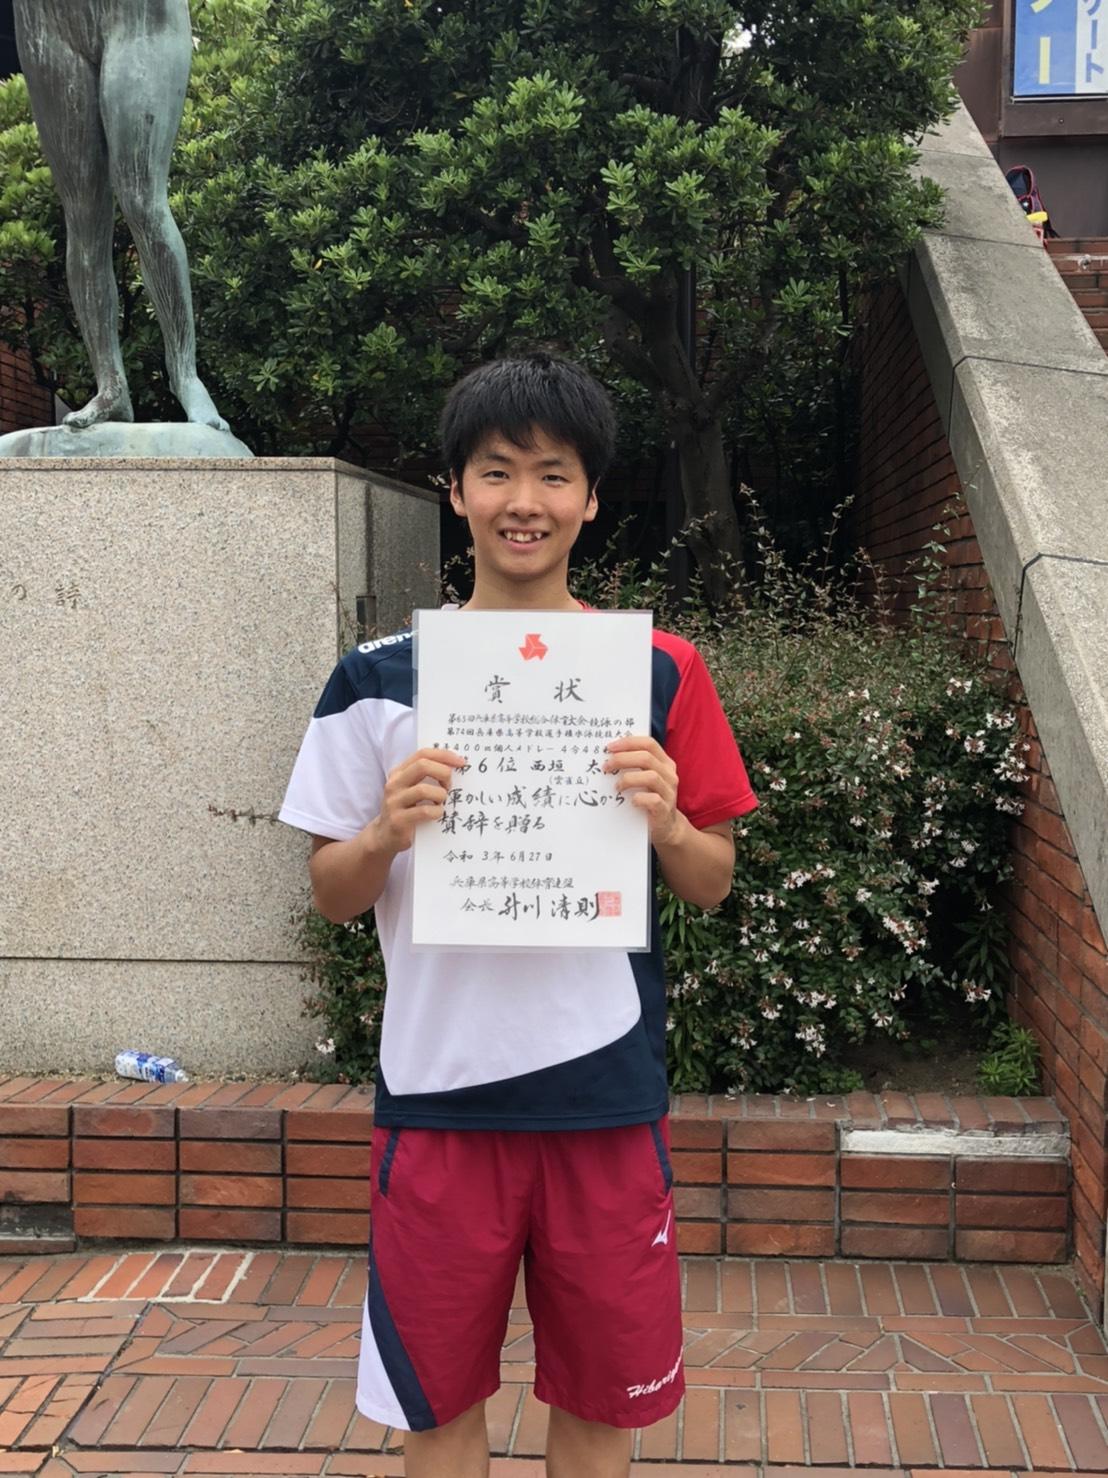 ート
の詩
arena
賞状
第65回兵庫県高等学校総合体育大会競泳の部
第74回兵庫県高等学校選手権水泳競技大会
400m個人メドレー 4分48
第6位 西垣 太
(雲雀丘)
輝かしい成績に心から
賛辞を贈る
令和 3年 6月27日
兵庫県高等学校体育連盟
会長 升川清則
Hibariga